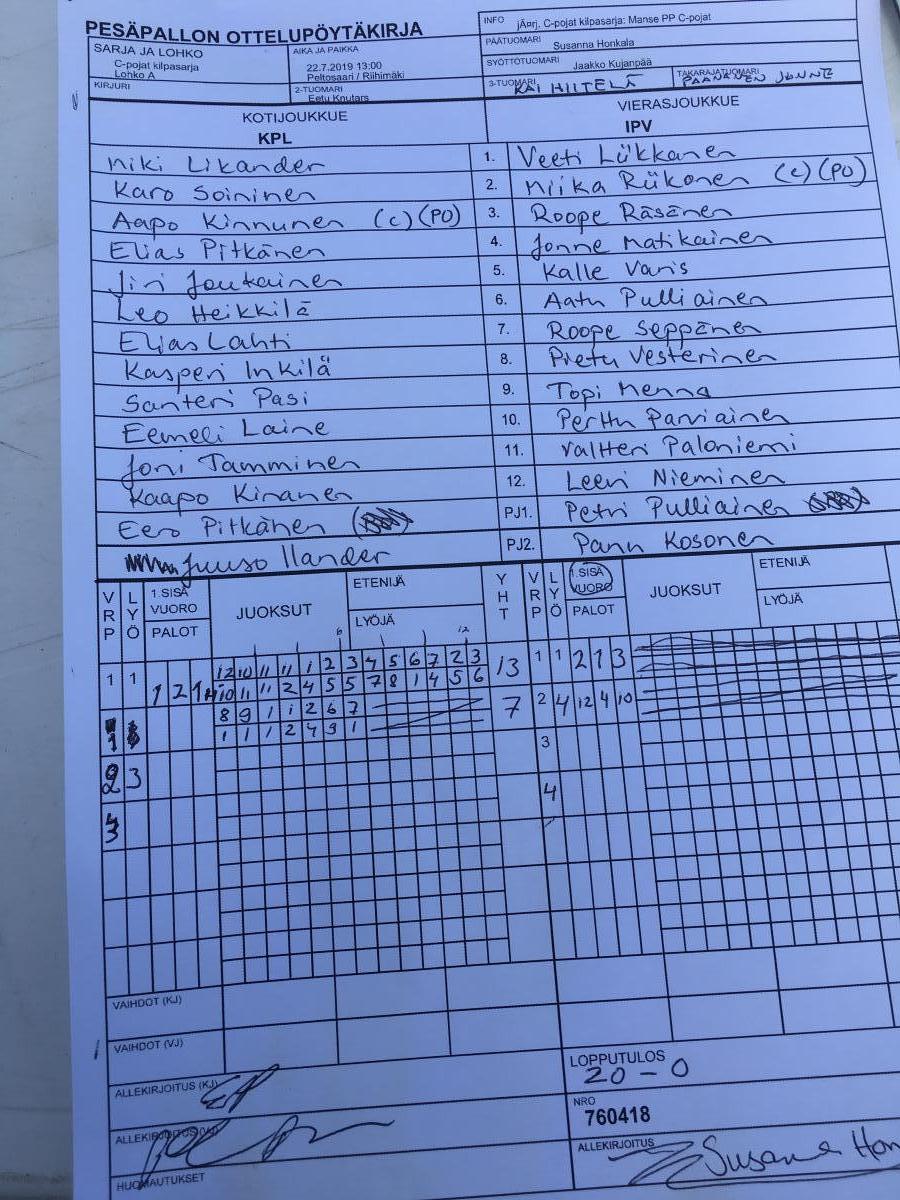 PESÄPALLON OTTELUPÖYTÄKIRJA
INFO jÄ¤rj. C-pojat kilpasarja: Manse PP C-pojat
SARJA JA LOHKO
C-pojat kilpasarja
Lohko A
AIKA JA PAIKKA
22.7.2019 13:00
Peltosaari / Riihimäki
PÄÄTUOMARI Susanna Honkala
SYÖTTÖTUOMARI Jaakko Kujanpää
KIRJURI
2-TUOMARI
Eetu Knutars
3-TUOMARI KAI HIITELÄ
TAKARAJATUOMARI PAANANEN JONNE
KOTIJOUKKUE
KPL
VIERASJOUKKUE
IPV
Niki Likander 1. Veeti Lükkanen
Karo Soininen 2. Miika Riikonen (c) (PO)
Aapo Kinnunen (c) (PO) 3. Roope Räsänen
Elias Pitkänen 4. Jonne Matikainen
Jiri Joukainen 5. Kalle Varis
Leo Heikkilä 6. Aatu Pulliainen
Elias Lahti 7. Roope Seppänen
Kasperi Inkilä 8. Pietu Vesterinen
Santeri Pasi 9. Topi Menna
Eemeli Laine 10. Perttu Parviainen
Joni Tamminen 11. Valtteri Paloniemi
Kaapo Kinanen 12. Leevi Nieminen
Eero Pitkänen PJ1. Petri Pulliainen
Juuso Ilander PJ2. Panu Kosonen
VRP LYÖ 1.SISÄ VUORO PALOT JUOKSUT ETENIJÄ LYÖJÄ YHT VRP LYÖ 1.SISÄ VUORO PALOT JUOKSUT ETENIJÄ LYÖJÄ
6 12
1 1 12 10 11 11 1 2 3 4 5 6 7 2 3 13 1 1 2 1 3
1 2 11 10 11 11 2 4 5 5 7 8 1 4 5 6
8 9 1 1 2 6 7 7 2 4 12 4 10
1 1 1 2 4 9 1
3
2 3
4
3
VAIHDOT (KJ)
VAIHDOT (VJ)
ALLEKIRJOITUS (KJ)
LOPPUTULOS
20 - 0
NRO
760418
ALLEKIRJOITUS (VJ)
ALLEKIRJOITUS
Susanna Hon
HUOMAUTUKSET